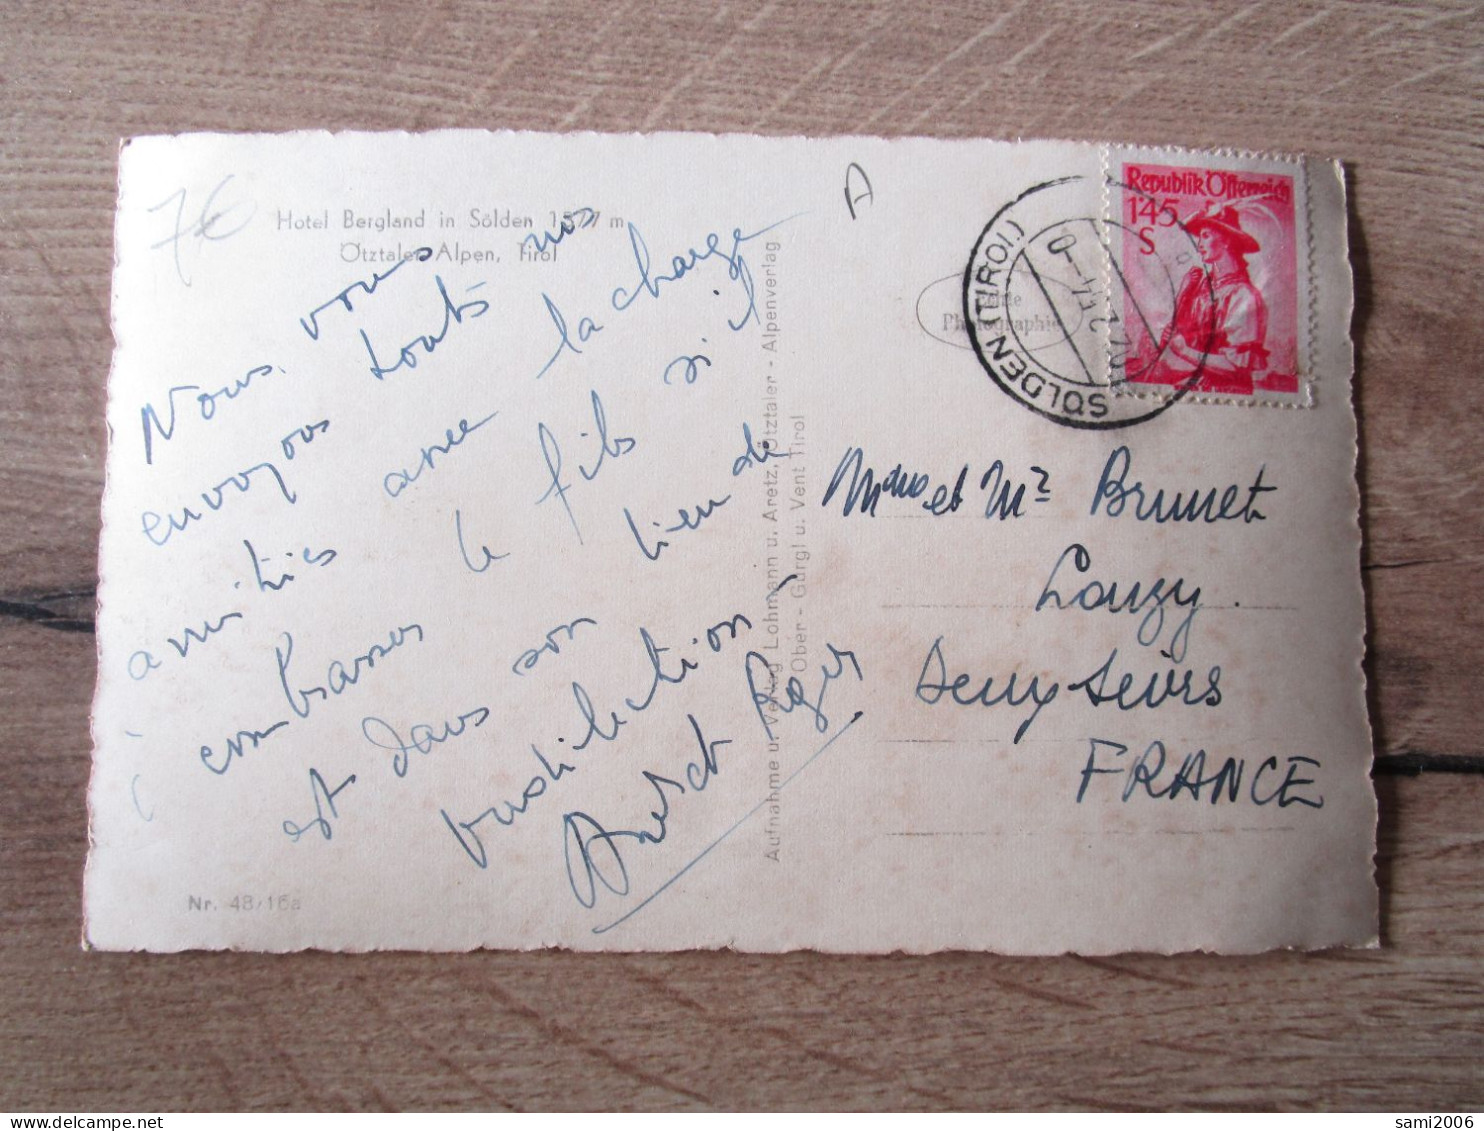 7€
Hotel Bergland in Sölden 1377 m
Ötztaler Alpen, Tirol
A
Nous vous
envoyons touts nos
amitiés avec la charge
embrasser le fils s'il
est dans son lieu de
Roger
Nr. 48/16a
Aufnahme u. Verlag Lohmann u. Aretz, Ötztaler - Alpenverlag
Ober - Gurgl u. Vent Tirol
Echte
Photographie
SÖLDEN (TIROL)
Republik Österreich
1'45
S
et Mr Brunet
Louzy.
Deux Sèvres
FRANCE
sami2006